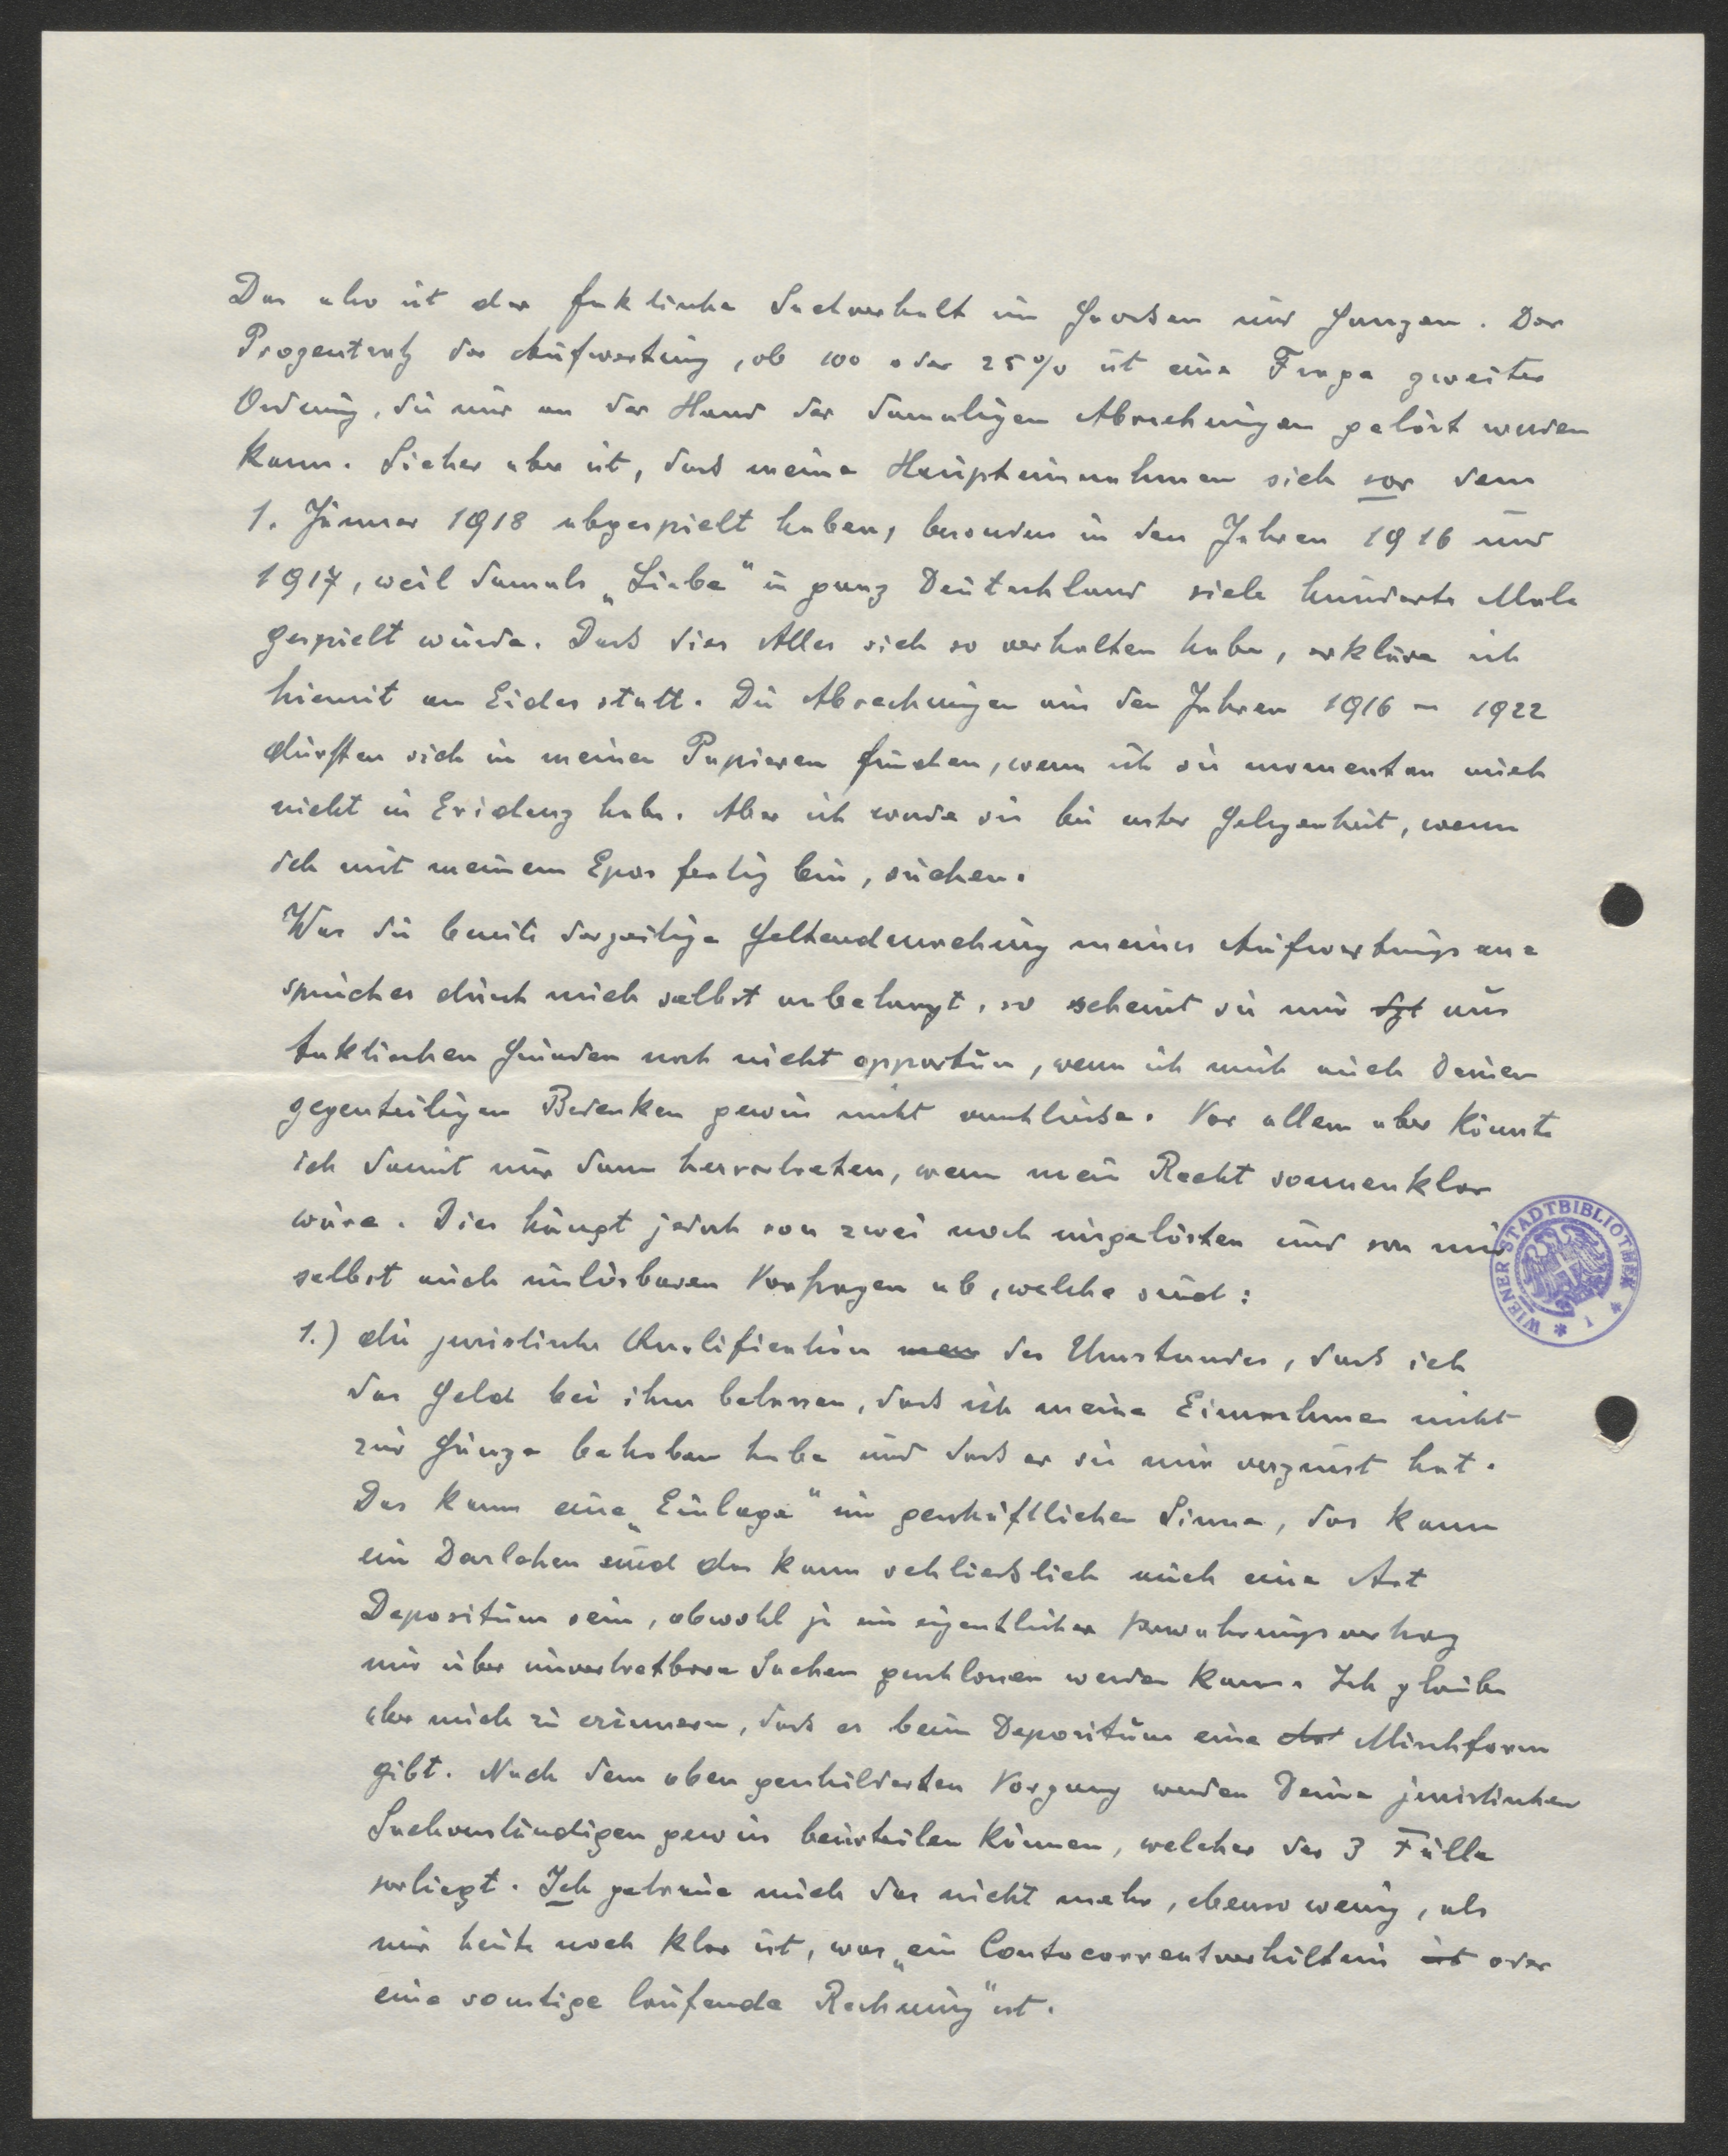 Das also ist der faktische Sachverhalt im Grossen und Ganzen. Der
Prozentsatz der Aufwertung, ob 100 oder 25% ist eine Frage zweiter
Ordnung, die nur an der Hand der damaligen Abrechnungen gelöst werden
kann. Sicher aber ist, dass meine Haupteinnahmen sich vor dem
1. Jänner 1918 abgespielt haben, besonders in den Jahren 1916 und
1917, weil damals „Liebe" in ganz Deutschland viele hunderte Male
gespielt wurde. Dass dies Alles sich so verhalten habe, erkläre ich
hiemit an Eides statt. Die Abrechnungen aus den Jahren 1916 – 1922
dürften sich in meinen Papieren finden, wenn ich sie momentan auch
nicht in Evidenz habe. Aber ich werde sie bei erster Gelegenheit, wenn
ich mit meinem Epos fertig bin, suchen.
Was die bereits derzeitige Geltendmachung meines Aufwertungsan=
spruches durch mich selbst anbelangt, so scheint sie mir aus
taktischen Gründen noch nicht opportun, wenn ich mich auch Deinen
gegenteiligen Bedenken gewiss nicht verschliesse. Vor allem aber könnte
ich damit nur dann hervortreten, wenn mein Recht sonnenklar
wäre. Dies hängt jedoch von zwei noch ungelösten und von mir
selbst auch unlösbaren Vorfragen ab, welche sind:
1.) die juristische Qualification des Umstandes, dass ich
das Geld bei ihm belassen, dass ich meine Einnahmen nicht
zur Gänze behoben habe und dass er sie mir verzinst hat.
Das kann eine „Einlage" im geschäftlichen Sinne, das kann
ein Darlehen und das kann schliesslich auch eine Art
Depositum sein, obwohl ja ein eigentlicher Verwahrungsvertrag
nur über unvertretbare Sachen geschlossen werden kann. Ich glaube
aber mich zu erinnern, dass es beim Depositum eine Mischform
gibt. Nach dem oben geschilderten Vorgang werden Deine juristischen
Sachverständigen gewiss beurteilen können, welcher der 3 Fälle
vorliegt. Ich getraue mich das nicht mehr, ebenso wenig, als
mir heute noch klar ist, was „ein Contocorrentverhältnis oder
eine sonstige laufende Rechnung" ist.
WIENER STADTBIBLIOTHEK * 1 *